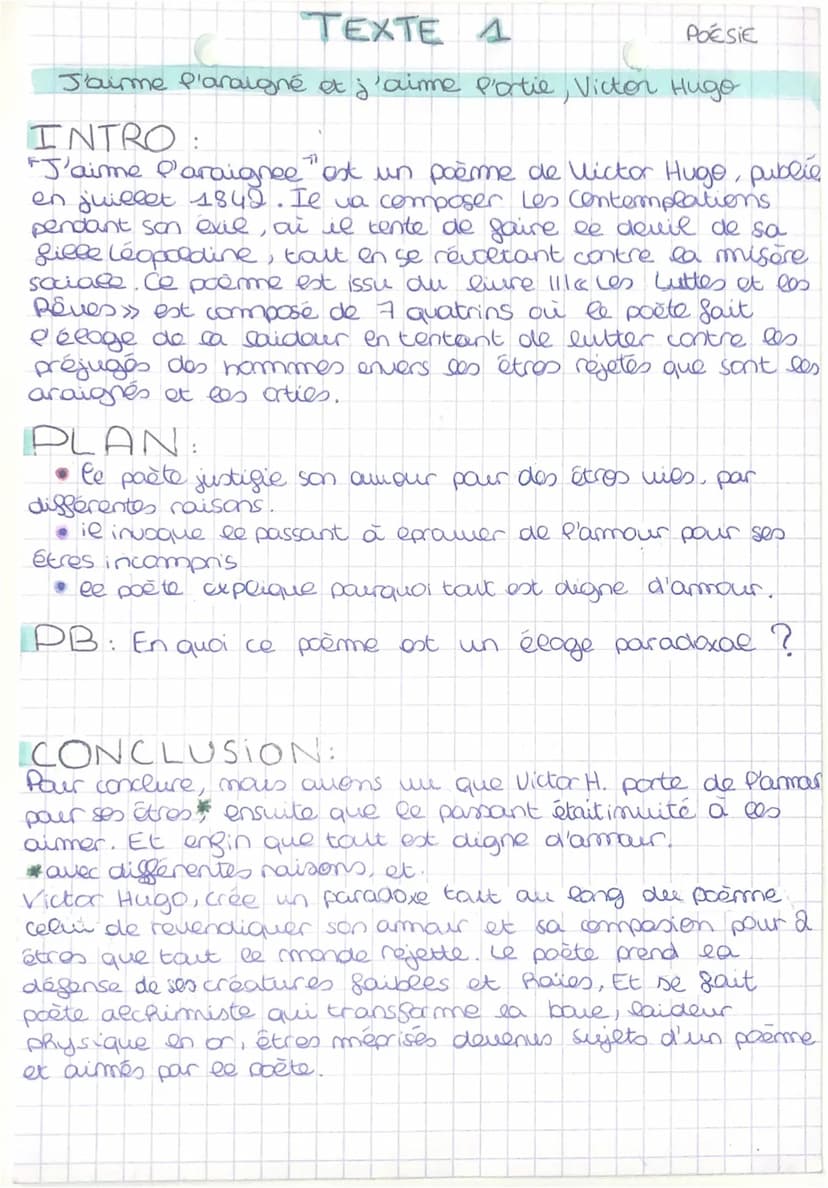 TEXTE 1
POÉSIE
J'aime l'araigné et j'aime l'ortie, Victor Hugo
INTRO :
"J'aime l'araignee" est un poème de Victor Hugo, publié
en juillet 1842. Il va composer Les Contemplations
pendant son exil, où il tente de faire le deuil de sa
fille Léopoldine, tout en se révoltant contre la misère
sociale. Ce poème est issu du livre III « Les Luttes et les
Rêves » est composé de 7 quatrins où le poète fait
l'éloge de la laideur en tentant de lutter contre les
préjugés des hommes envers les êtres rejetés que sont les
araignés et les orties.
PLAN :
• le poète justifie son amour pour des êtres vils, par
différentes raisons.
• il invoque le passant à eprouver de l'amour pour ses
êtres incompris
• le poète explique pourquoi tout est digne d'amour.
PB : En quoi ce poème est un éloge paradoxal ?
CONCLUSION :
Pour conclure, nous avons vu que Victor H. porte de l'amour
pour ses êtres*, ensuite que le passant était invité à les
aimer. Et enfin que tout est digne d'amour.
*avec différentes raisons, et.
Victor Hugo, crée un paradoxe tout au long du poème
celui de revendiquer son amour et sa compasion pour 2
êtres que tout le monde rejette. Le poète prend la
défense de ses créatures faibles et haïes, Et se fait
poète alchimiste qui transforme la boue, laideur
physique en or, êtres méprisés devenus sujets d'un poème
et aimés par le poète.